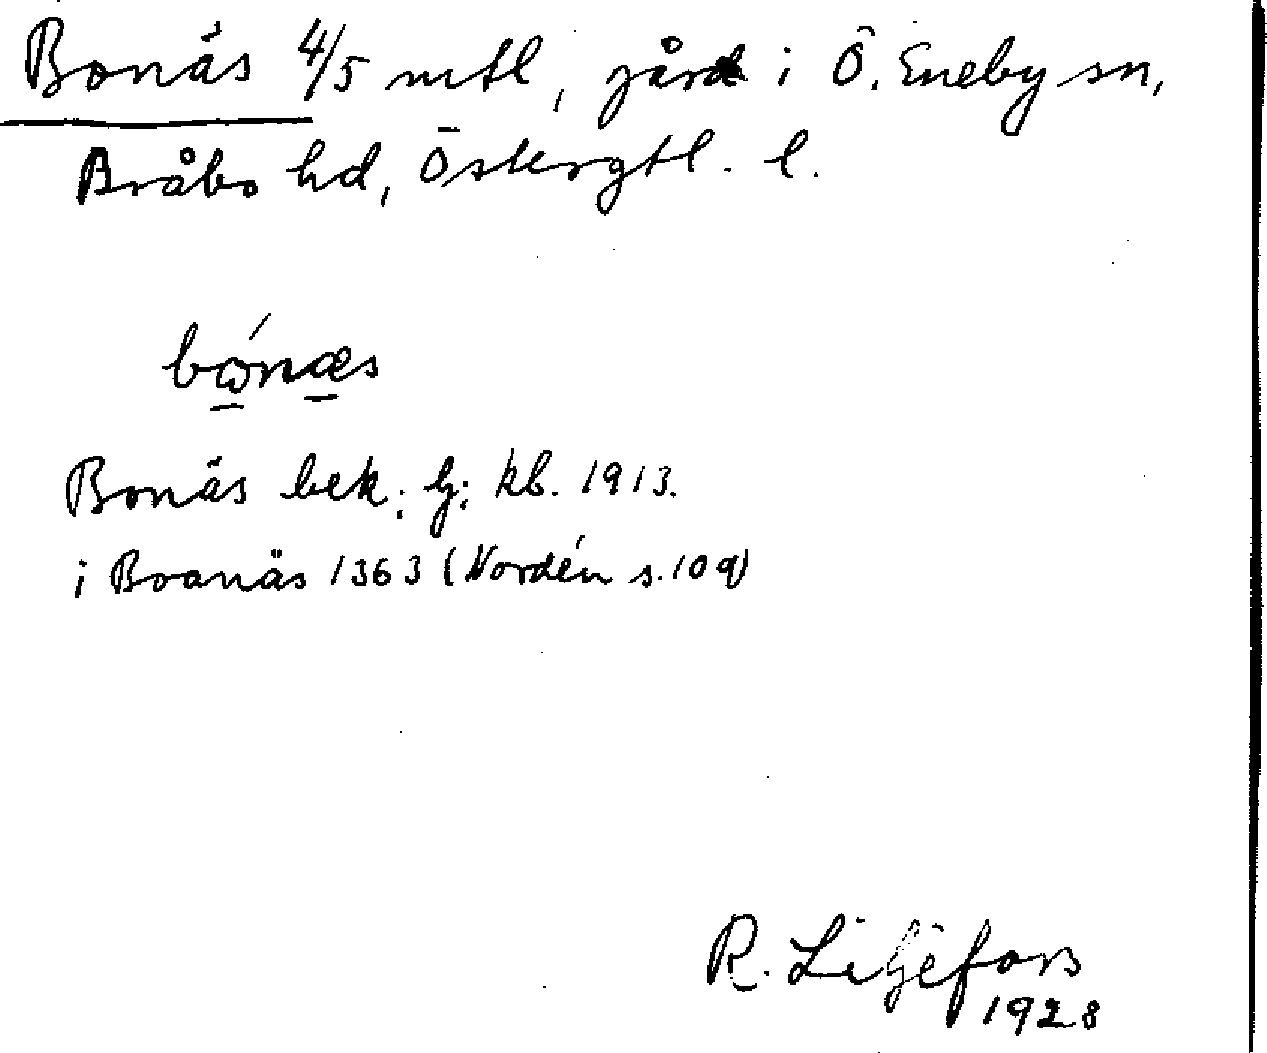 Bonäs 4/5 mtl, gård i Ö. Eneby sn,
Bråbo hd, Östergtl. l.
bώnæs
Bonäs bek. lj: kb. 1913.
i Boanäs 1363 (Nordén s. 109)
R. Liljefors
1928